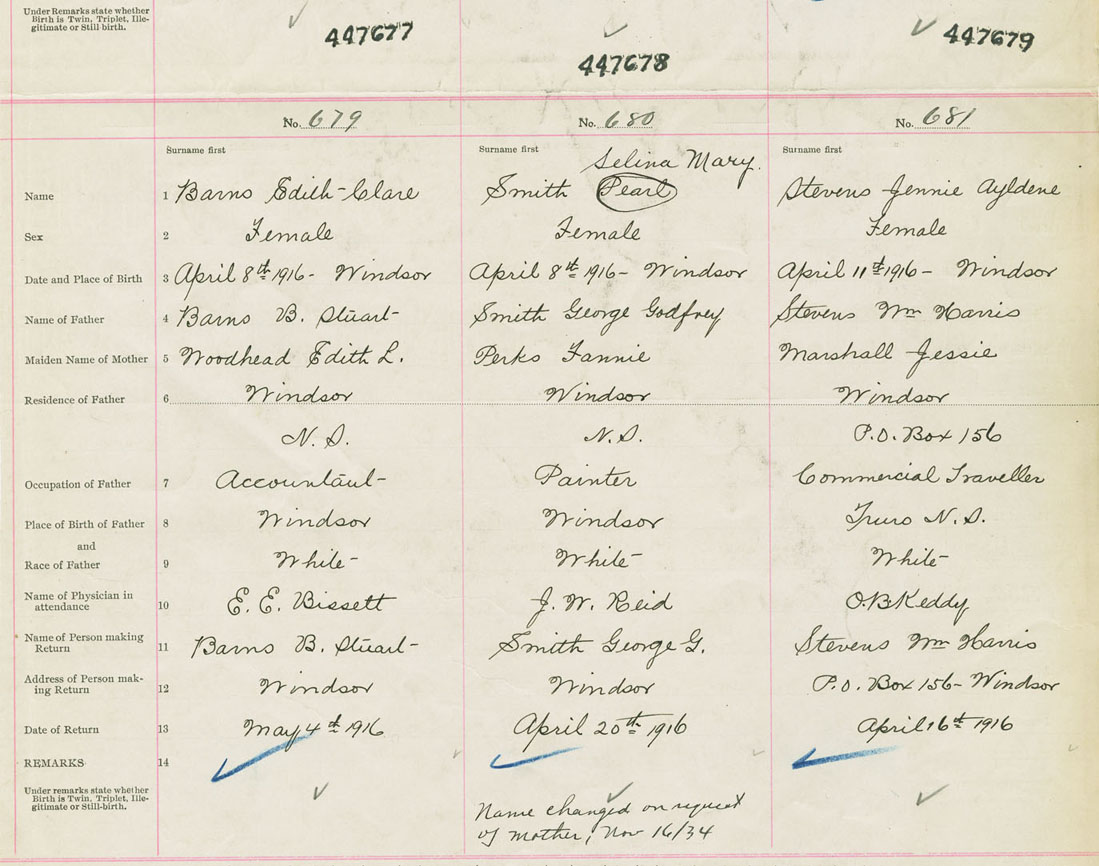 Under Remarks state whether
Birth is Twin, Triplet, Ille-
gitimate or Still birth.
447677
447678
447679
No. 679
No. 680
No. 681
Surname first
Surname first
Surname first
Selina Mary.
Name 1 Barns Edith Clare
Smith Pearl
Stevens Jennie Ayldene
Sex 2 Female
Female
Female
Date and Place of Birth 3 April 8th 1916 - Windsor
April 8th 1916 - Windsor
April 11th 1916 - Windsor
Name of Father 4 Barns B. Stuart
Smith George Godfrey
Stevens Wm Harris
Maiden Name of Mother 5 Woodhead Edith L.
Perks Fannie
Marshall Jessie
Residence of Father 6 Windsor
Windsor
Windsor
N.S.
N.S.
P.O. Box 156
Occupation of Father 7 Accountant
Painter
Commercial Traveller
Place of Birth of Father 8 Windsor
Windsor
Truro N.S.
and
Race of Father 9 White
White
White
Name of Physician in
attendance 10 E. E. Bissett
J. W. Reid
O.B Keddy
Name of Person making
Return 11 Barns B. Stuart
Smith George G.
Stevens Wm Harris
Address of Person mak-
ing Return 12 Windsor
Windsor
P.O. Box 156 - Windsor
Date of Return 13 May 4th 1916
April 20th 1916
April 16th 1916
REMARKS 14
Under remarks state whether
Birth is Twin, Triplet, Ille-
gitimate or Still-birth.
Name changed on request
of mother, Nov 16/34